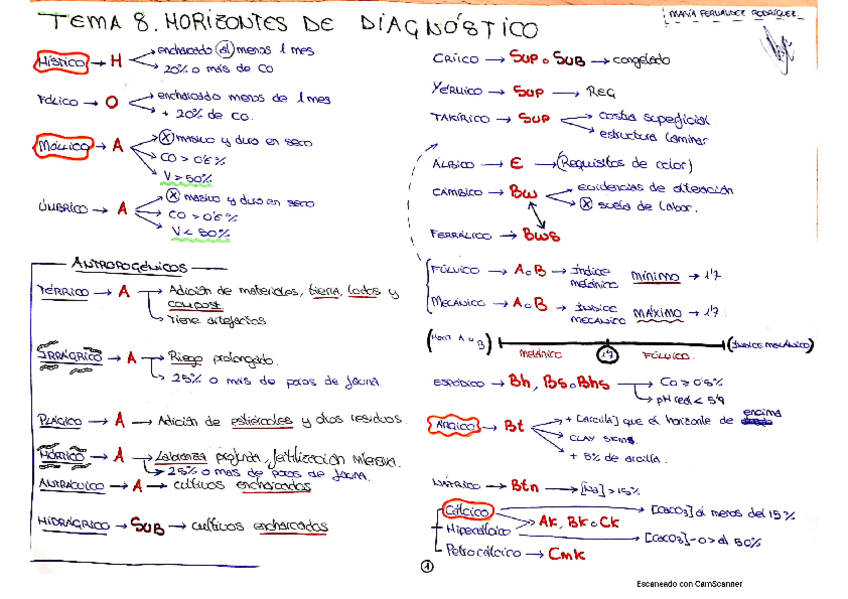 TEMA 8. HORIZONTES DE DIAGNÓSTICO
MARÍA FERNANDEZ RODRÍGUEZ
HÍSTICO → H
encharcado al menos 1 mes
20% o más de CO
FÓLICO → O
encharcado menos de 1 mes
+ 20% de CO.
MÓLLICO → A
X masivo y duro en seco
CO > 0'6%
V > 50%
ÚMBRICO → A
X masivo y duro en seco
CO > 0'6%
V < 50%
ANTROPOGÉNICOS
TÉRRICO → A
Adición de materiales, tierra, lodos y
compost
Tiene artefactos
IRRÁGRICO → A
Riego prolongado.
25% o más de poros de fauna.
PLÁGICO → A → Adición de estiércoles y otros residuos.
HÓRTICO → A
Labranza profunda, fertilización intensiva.
25% o más de poros de fauna.
ANTRÁCUICO → A → cultivos encharcados
HIDRÁGRICO → SUB → cultivos encharcados
CRÍICO → SUP o SUB → congelado
YÉRMICO → SUP → REG
TAKÍRICO → SUP
costra superficial
estructura laminar
ÁLBICO → E → (Requisitos de color)
CÁMBICO → Bw
evidencias de alteración
X suela de labor.
FERRÁLICO → Bws
FÚLVICO → A o B → índice melánico mínimo → 1'7
MELÁNICO → A o B → índice melánico MÁXIMO → 1'7
(Hor. A o B)
MELÁNICO
1'7
FÚLVICO.
(ÍNDICE MELÁNICO)
ESPÓDICO → Bh, Bs o Bhs
CO ≥ 0'5%
pH red. < 5'9
ÁRGICO → Bt
+ [Arcilla] que el horizonte de encima
CLAY SKINS.
+ 8% de arcilla.
NÁTRICO → Btn → [Na] > 15%
Cálcico
Hipercálcico
Ak, Bk o Ck
[CaCO3] al menos del 15%
[CaCO3] → al 50%
Petrocálcico → Cmk
1
Escaneado con CamScanner